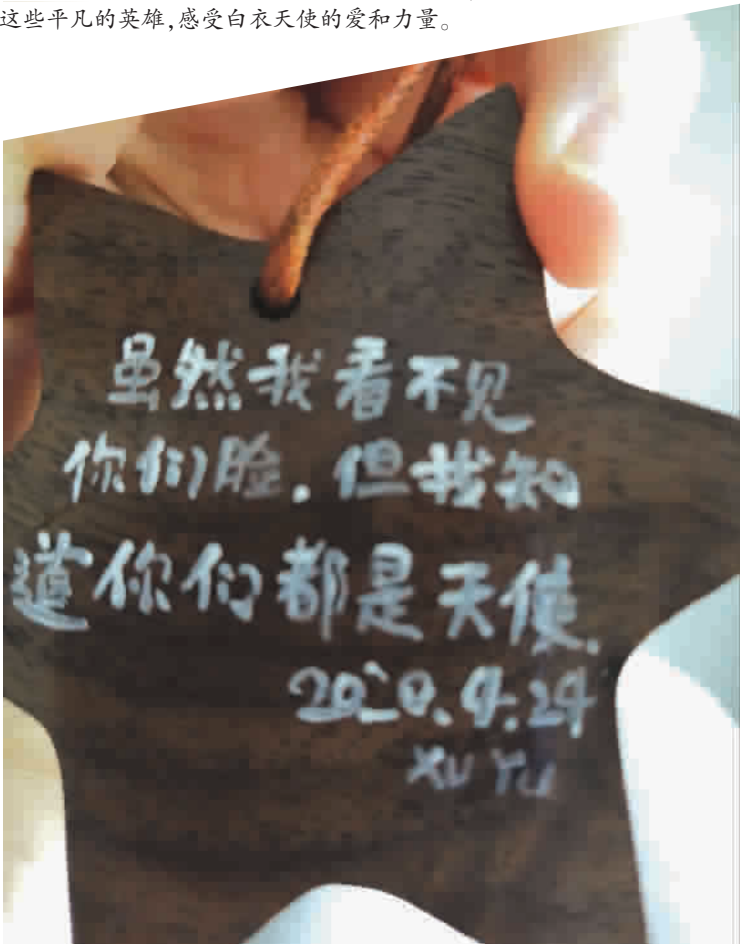 这些平凡的英雄,感受白衣天使的爱和力量。
虽然我看不见
你们脸.但我知
道你们都是天使.
2020.4.24
XU YU